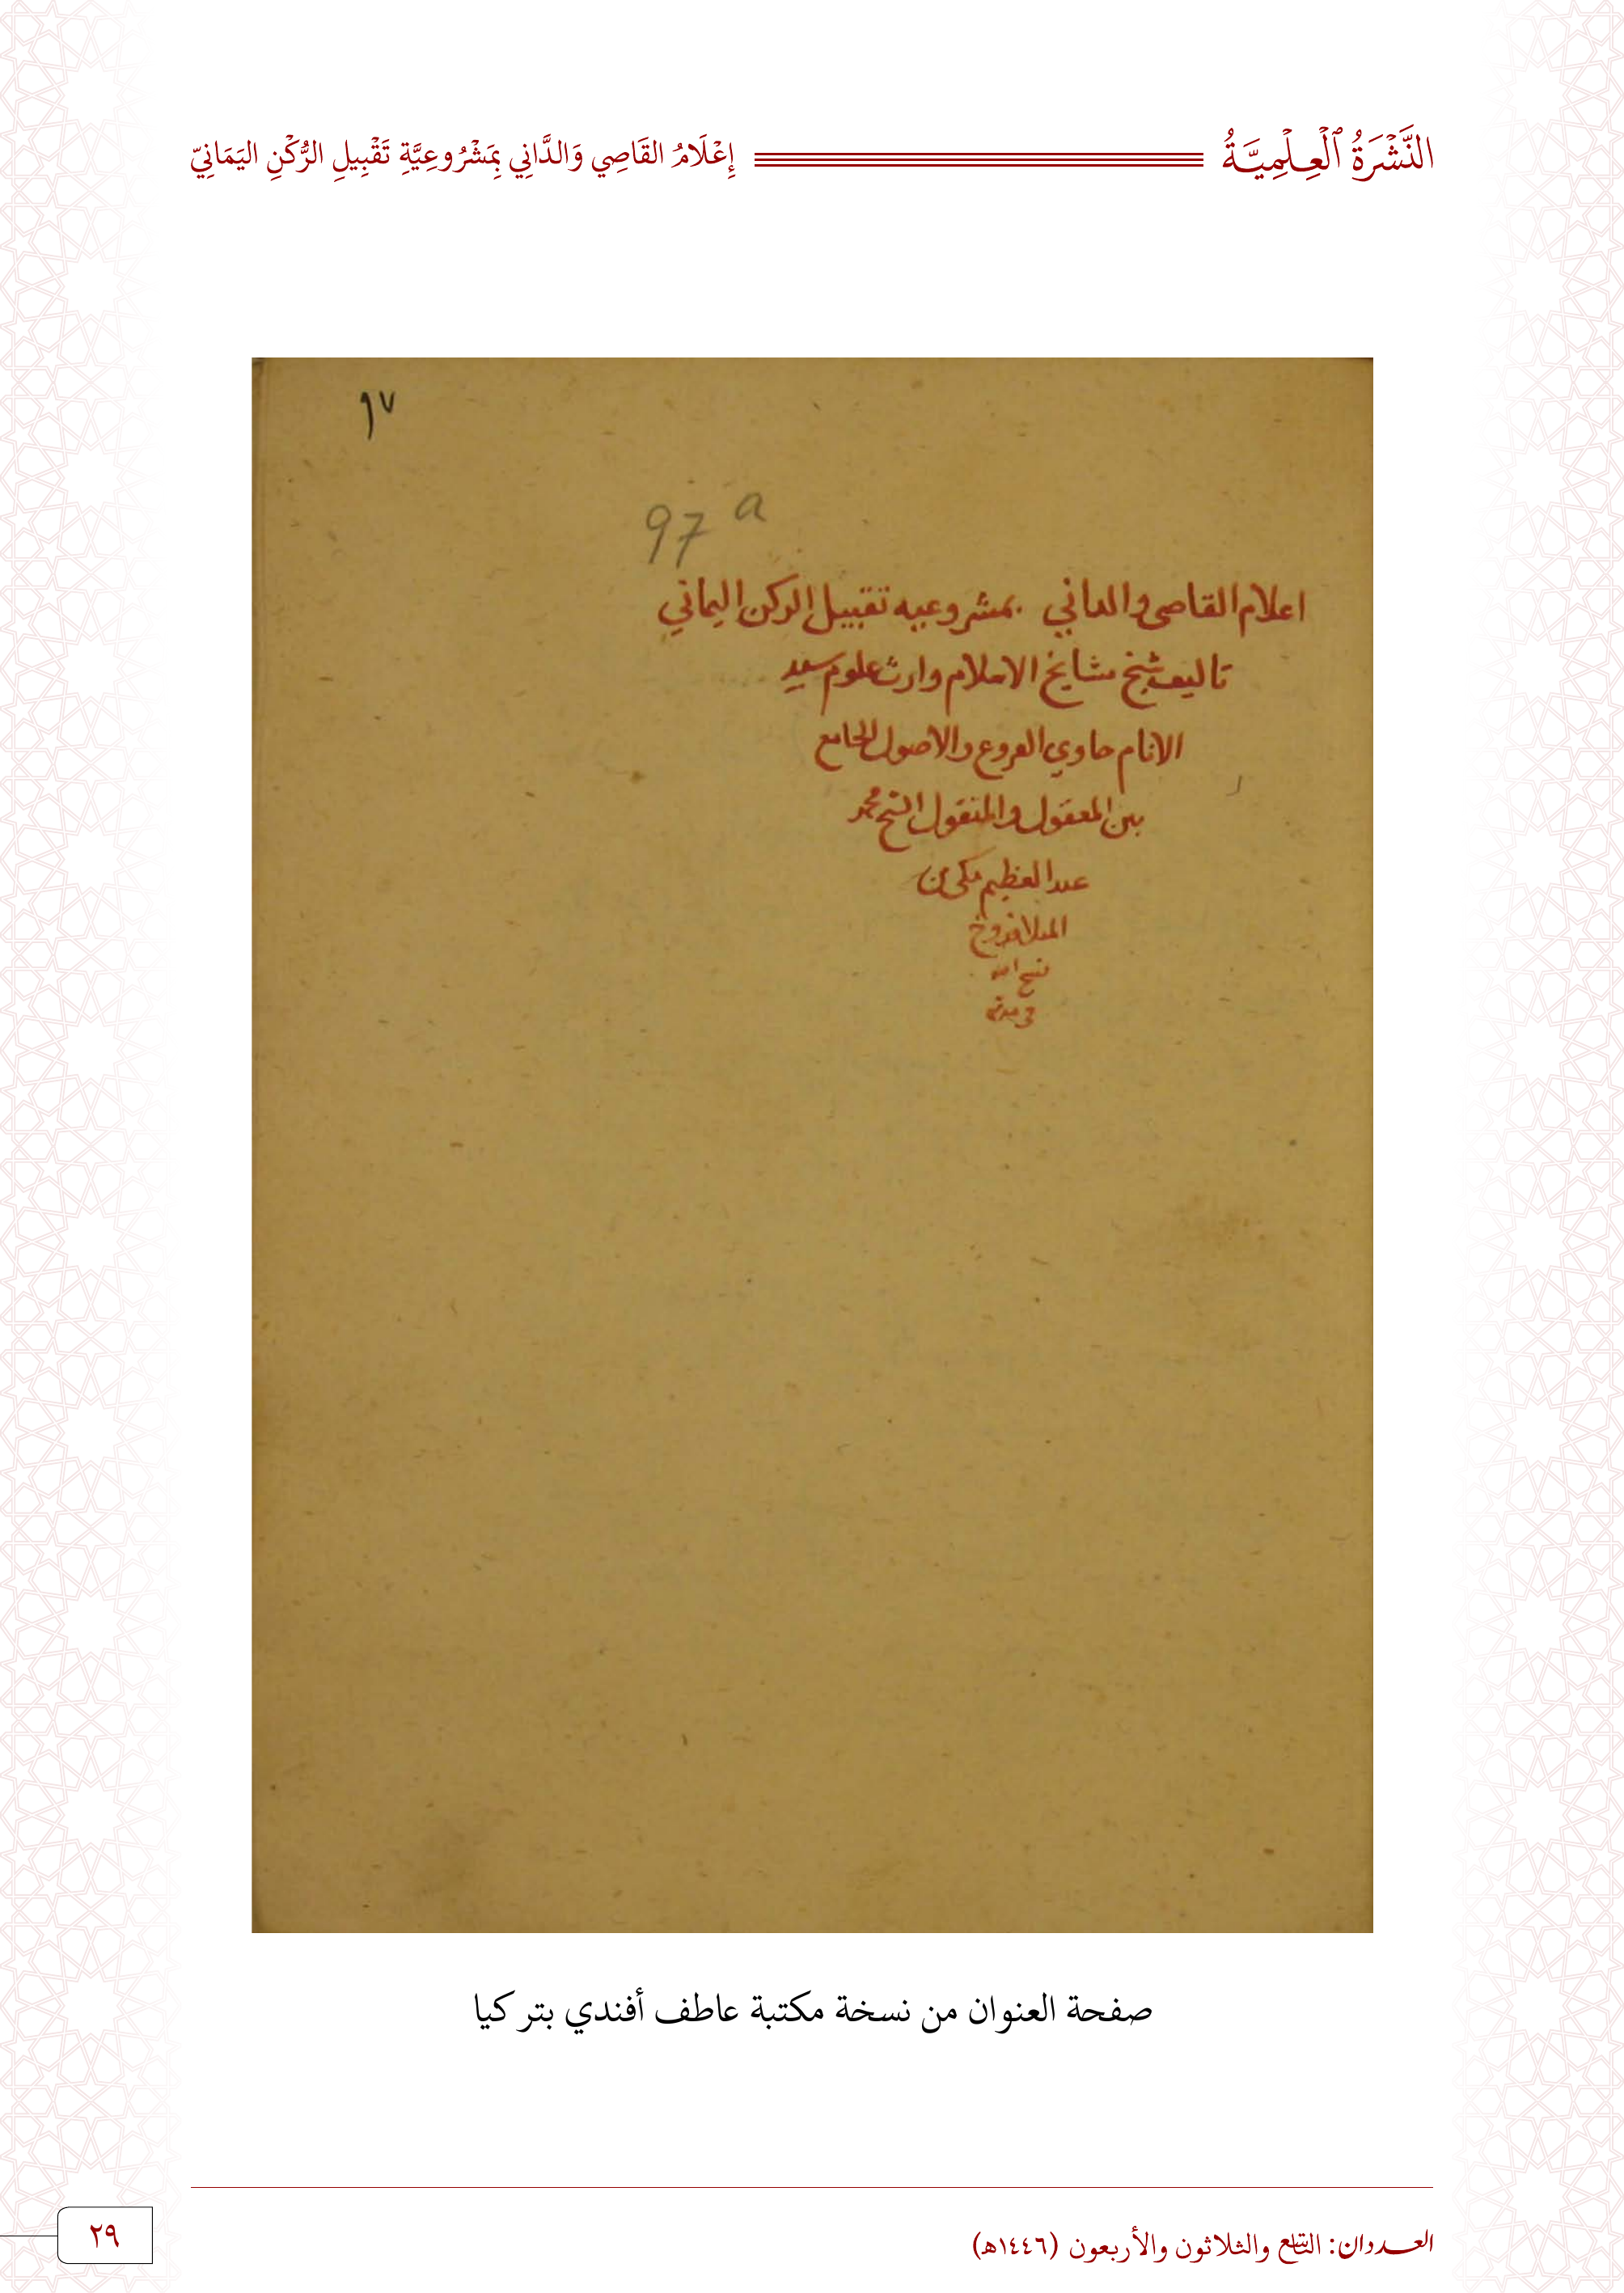 النَّشْرَةُ ٱلْعِلْمِيَّةُ إِعْلَامُ القَاصِي وَالدَّانِي بِمَشْرُوعِيَّةِ تَقْبِيلِ الرُّكْنِ اليَمَانِيّ
٩٧
97 a
اعلام القاصى والدانى بمشروعيه تقبيل الركن اليماني
تاليف شيخ مشايخ الاسلام وارث علوم سيد
الانام حاوي الفروع والاصول الجامع
بين المعقول والمنقول الشيخ محمد
عبد العظيم مكى بن
الملا فروخ
فسح الله
في مدته
صفحة العنوان من نسخة مكتبة عاطف أفندي بتركيا
العددان: التاسع والثلاثون والأربعون (١٤٤٦هـ)
٢٩